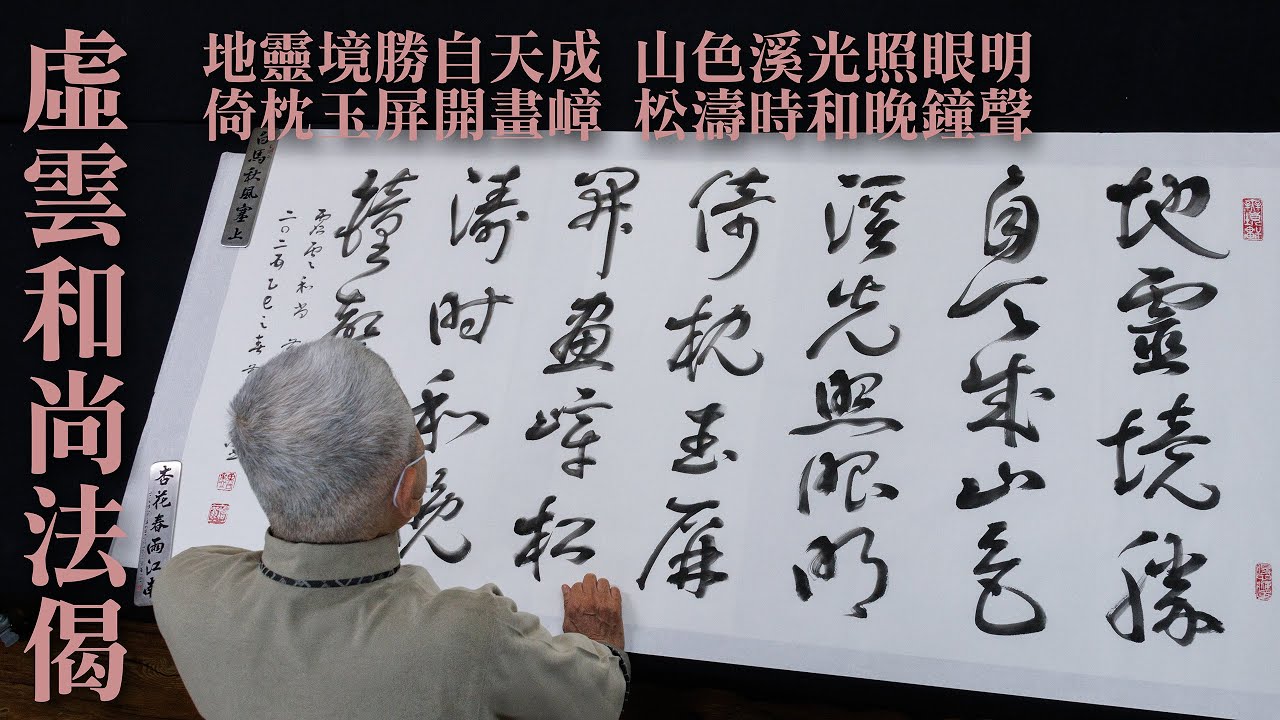 虛雲和尚法偈
地靈境勝自天成 山色溪光照眼明
倚枕玉屏開畫嶂 松濤時和晚鐘聲
地靈境勝
自天成山色
溪光照眼明
倚枕玉屏
開畫嶂松
濤時和晚
鐘聲
虛雲和尚
二〇二五乙巳之春
白馬秋風塞上
杏花春雨江南